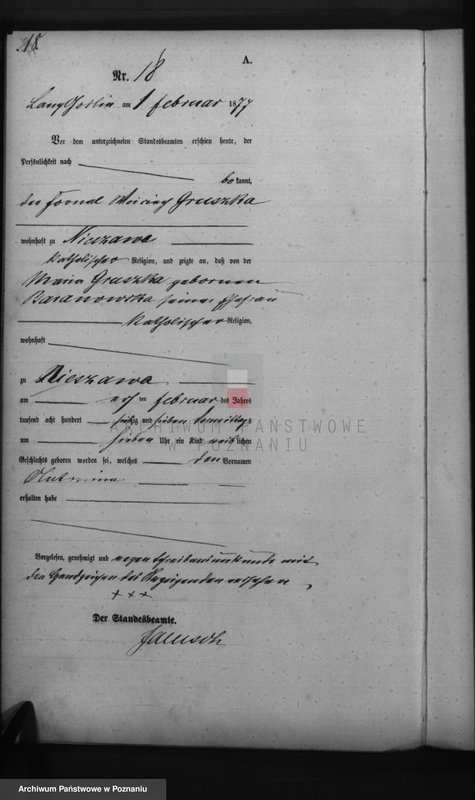 18.
A.
Nr. 18
LangGoslin am 1 februar 1877
Vor dem unterzeichneten Standesbeamten erschien heute, der
Persönlichkeit nach
bekannt,
der Fornal Woiciech Gruszka
wohnhaft zu Nieszawa
katholischer Religion, und zeigte an, daß von der
Maria Gruszka geborenen
Baranowska seiner Ehefrau
katholischer Religion,
wohnhaft
zu Nieszawa
am ten februar des Jahres
tausend acht hundert siebzig und sieben Vormittags
um sieben Uhr ein Kind weiblichen
Geschlechts geboren worden sei, welches den Vornamen
erhalten habe
Vorgelesen, genehmigt und wegen Schreibensunkunde mit
den Handzeichen des Anzeigenden versehen
+ + +
Der Standesbeamte.
ARCHIWUM PAŃSTWOWE
W POZNANIU
Archiwum Państwowe w Poznaniu